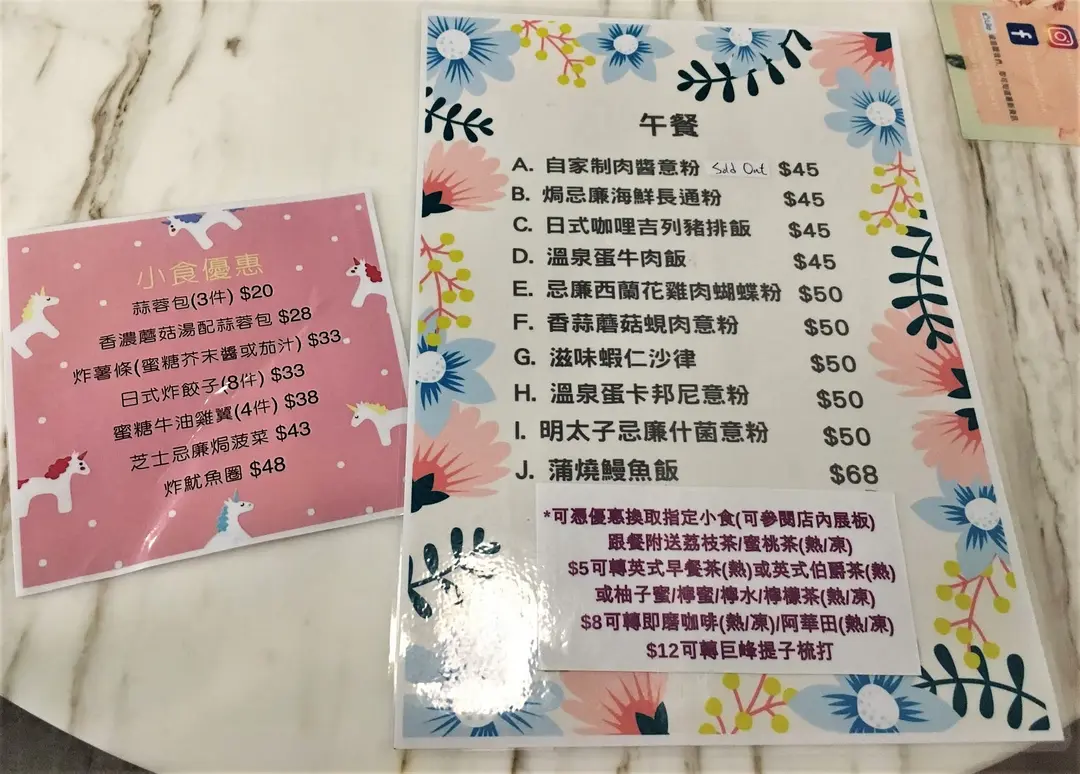 小食優惠
蒜蓉包(3件) $20
香濃蘑菇湯配蒜蓉包 $28
炸薯條(蜜糖芥末醬或茄汁) $33
日式炸餃子(8件) $33
蜜糖牛油雞翼(4件) $38
芝士忌廉焗菠菜 $43
炸魷魚圈 $48
午餐
A. 自家制肉醬意粉 Sold Out $45
B. 焗忌廉海鮮長通粉 $45
C. 日式咖哩吉列豬排飯 $45
D. 溫泉蛋牛肉飯 $45
E. 忌廉西蘭花雞肉蝴蝶粉 $50
F. 香蒜蘑菇蜆肉意粉 $50
G. 滋味蝦仁沙律 $50
H. 溫泉蛋卡邦尼意粉 $50
I. 明太子忌廉什菌意粉 $50
J. 蒲燒鰻魚飯 $68
*可憑優惠換取指定小食(可參閱店內展板)
跟餐附送荔枝茶/蜜桃茶(熱/凍)
$5可轉英式早餐茶(熱)或英式伯爵茶(熱)
或柚子蜜/檸蜜/檸水/檸檬茶(熱/凍)
$8可轉即磨咖啡(熱/凍)/阿華田(熱/凍)
$12可轉巨峰提子梳打